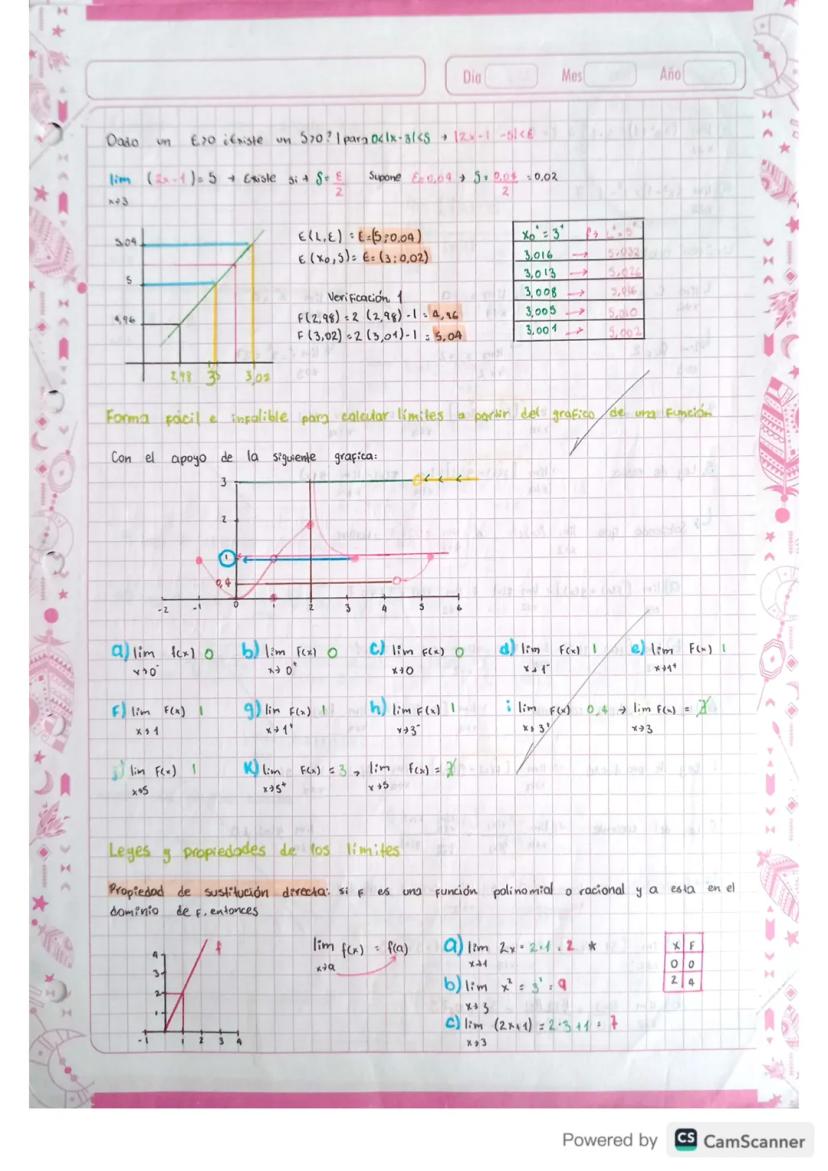 Dia Mes Año
Dado un ε>0 ¿Existe un δ>0? | para 0<|x-3|<δ → |2x-1 -5|<ε
lim (2x-1)=5 → Existe si → δ= ε/2 Supone ε=0,04 → δ= 0,04/2 = 0,02
x→3
5,04
5
4,96
2,98 3 3,02
E(L,E) = E=(5;0,04)
E(x₀,δ)= E=(3;0,02)
Verificación 1
F(2,98)=2 (2,98)-1 = 4,96
F(3,02)=2 (3,01)-1 = 5,04
x₀⁺ = 3⁺
3,016 → 5,032
3,013 → 5,026
3,008 → 5,016
3,005 → 5,010
3,001 → 5,002
Forma fácil e infalible para calcular límites a partir del grafico de una Función
Con el apoyo de la siguiente grafica:
3
2
1
0,4
-2 -1 0 1 2 3 4 5 6
a) lim f(x) 0 b) lim F(x) 0 c) lim F(x) 0 d) lim F(x) 1 e) lim F(x) 1
x→0⁻ x→0⁺ x→0 x→1⁻ x→1⁺
F) lim F(x) 1 g) lim F(x) 1 h) lim F(x) 1 i lim F(x) 0,4 → lim F(x) = ∄
x→1 x→1⁺ x→3⁻ x→3⁺ x→3
j) lim F(x) 1 K) lim F(x) = 3 → lim F(x) = ∄
x→5 x→5⁺ x→5
Leyes y propiedades de los límites
Propiedad de sustitución directa: si F es una función polinomial o racional y a esta en el
dominio de F, entonces
4
3
2
1
-1 1 2 3 4
f
lim f(x) = f(a)
x→a
a) lim 2x = 2·1 = 2 *
x→1
b) lim x² = 3² = 9
x→3
c) lim (2x+1) = 2·3+1 = 7
x→3
X F
0 0
2 4
Powered by CS CamScanner